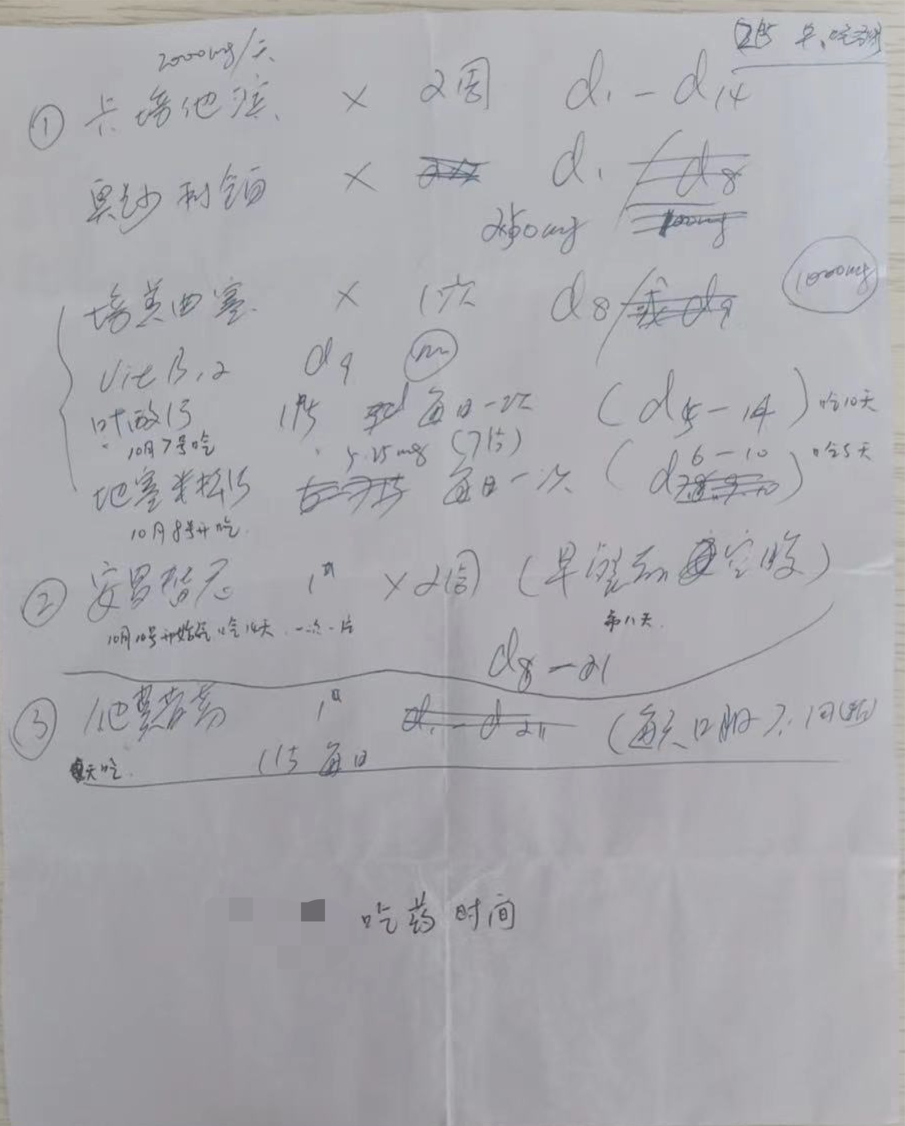 2000mg/天
① 卡培他滨 × 2周 d1 - d14
奥沙利铂 × d1
250mg
培美曲塞 × 1次 d8 1000mg
VitB12 d9 im
叶酸片 1片 每日一次 (d5-14) 吃10天
10月7号吃 5.25mg (7片)
地塞米松片 每日一次 (d6-10) 吃5天
10月8号开吃
② 安罗替尼 1# ×2周 (早 空腹)
10月10号开始吃 吃14天 一次一片 第八天
d8-21
③ 1# (每天口服
天吃. 1片 每日
吃药时间